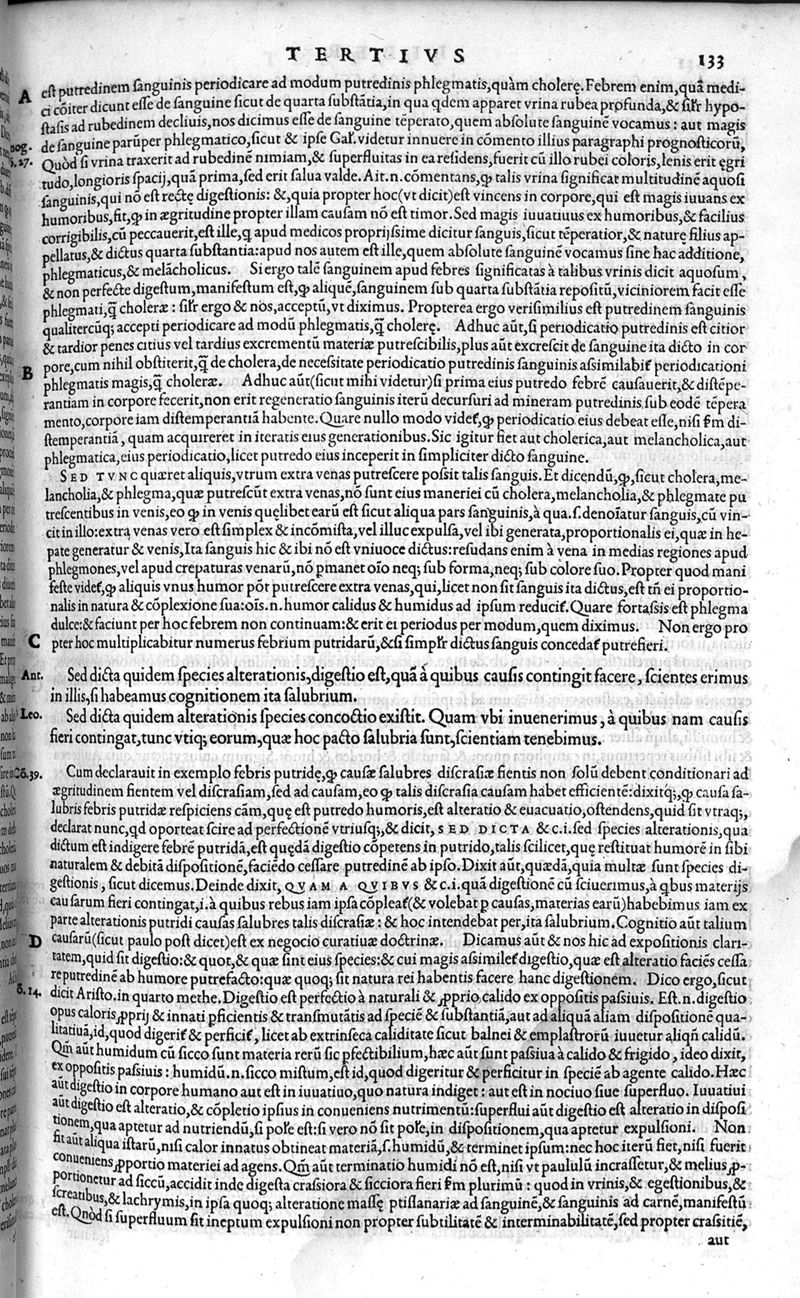 TERTIVS
133
A
est putredinem sanguinis periodicare ad modum putredinis phlegmatis, quàm cholerę. Febrem enim, quã medi-
ci cõiter dicunt esse de sanguine sicut de quarta substãtia, in qua qdem apparet vrina rubea profunda, & sil'r hypo-
stasis ad rubedinem decliuis, nos dicimus esse de sanguine tẽperato, quem absolute sanguinẽ vocamus: aut magis
nog. de sanguine parũper phlegmatico, sicut & ipse Gal'. videtur innuere in cõmento illius paragraphi prognosticorũ,
27. Quòd si vrina traxerit ad rubedinẽ nimiam, & superfluitas in ea residens, fuerit cũ illo rubei coloris, lenis erit ęgri
tudo, longioris spacij, quã prima, sed erit salua valde. Ait.n. cõmentans, ꝙ talis vrina significat multitudinẽ aquosi
sanguinis, qui nõ est rectę digestionis: &, quia propter hoc (vt dicit) est vincens in corpore, qui est magis iuuans ex
humoribus, fit, ꝙ in ægritudine propter illam causam nõ est timor. Sed magis iuuatiuus ex humoribus, & facilius
corrigibilis, cũ peccauerit, est ille, q apud medicos proprijssime dicitur sanguis, sicut tẽperatior, & naturę filius ap-
pellatus, & dictus quarta substantia: apud nos autem est ille, quem absolute sanguinẽ vocamus sine hac additione,
phlegmaticus, & melãcholicus. Si ergo talẽ sanguinem apud febres significatas à talibus vrinis dicit aquosum,
& non perfecte digestum, manifestum est, ꝙ aliquẽ, sanguinem sub quarta substãtia repositũ, viciniorem facit esse
phlegmati, q̃ choleræ: sil'r ergo & nos, acceptũ, vt diximus. Propterea ergo verisimilius est putredinem sanguinis
qualitercũq; accepti periodicare ad modũ phlegmatis, q̃ cholerę. Adhuc aũt, si periodicatio putredinis est citior
& tardior penes citius vel tardius excrementũ materiæ putrescibilis, plus aũt excrescit de sanguine ita dicto in cor
B
pore, cum nihil obstiterit, q̃ de cholera, de necessitate periodicatio putredinis sanguinis assimilabit periodicationi
phlegmatis magis, q̃ choleræ. Adhuc aũt (sicut mihi videtur) si prima eius putredo febrẽ causauerit, & distẽpe-
rantiam in corpore fecerit, non erit regeneratio sanguinis iterũ decursuri ad mineram putredinis sub eodẽ tẽpera
mento, corpore iam distemperantiã habente. Quare nullo modo videt, ꝙ periodicatio eius debeat esse, nisi f̃m di-
stemperantiã, quam acquireret in iteratis eius generationibus. Sic igitur fiet aut cholerica, aut melancholica, aut
phlegmatica, eius periodicatio, licet putredo eius inceperit in simpliciter dicto sanguine.
SED TVNC quæret aliquis, vtrum extra venas putrescere possit talis sanguis. Et dicendũ, ꝙ, sicut cholera, me-
lancholia, & phlegma, quæ putrescũt extra venas, nõ sunt eius maneriei cũ cholera, melancholia, & phlegmate pu
trescentibus in venis, eo ꝙ in venis quęlibet earũ est sicut aliqua pars sanguinis, à qua.s. denoĩatur sanguis, cũ vin-
cit in illo: extra venas vero est simplex & incõmista, vel illuc expulsa, vel ibi generata, proportionalis ei, quæ in he-
pate generatur & venis, Ita sanguis hic & ibi nõ est vniuoce dictus: resudans enim à vena in medias regiones apud
phlegmones, vel apud crepaturas venarũ, nõ ꝑmanet oĩo neq; sub forma, neq; sub colore suo. Propter quod mani
feste videt, ꝙ aliquis vnus humor põt putrescere extra venas, qui, licet non sit sanguis ita dictus, est tñ ei proportio-
nalis in natura & cõplexione sua: oĩs.n. humor calidus & humidus ad ipsum reducit. Quare fortassis est phlegma
dulce: & faciunt per hoc febrem non continuam: & erit ei periodus per modum, quem diximus. Non ergo pro
C
pter hoc multiplicabitur numerus febrium putridarũ, & si simpl'r dictus sanguis concedat putrefieri.
Ant. Sed dicta quidem species alterationis, digestio est, quã à quibus causis contingit facere, scientes erimus
in illis, si habeamus cognitionem ita salubrium.
Leo. Sed dicta quidem alterationis species concoctio existit. Quam vbi inuenerimus, à quibus nam causis
fieri contingat, tunc vtiq; eorum, quæ hoc pacto salubria sunt, scientiam tenebimus.
Cõ.39. Cum declarauit in exemplo febris putridę, ꝙ causæ salubres discrasiæ fientis non solũ debent conditionari ad
ægritudinem fientem vel discrasiam, sed ad causam, eo ꝙ talis discrasia causam habet efficientẽ: dixitq;, ꝙ causa sa-
lubris febris putridæ respiciens cãm, quę est putredo humoris, est alteratio & euacuatio, ostendens, quid sit vtraq;,
declarat nunc, qd oporteat scire ad perfectionẽ vtriusq;, & dicit, SED DICTA & c.i. sed species alterationis, qua
dictum est indigere febrẽ putridã, est quędã digestio cõpetens in putrido, talis scilicet, quę restituat humorẽ in sibi
naturalem & debitã dispositionẽ, faciẽdo cessare putredinẽ ab ipso. Dixit aũt, quædã, quia multæ sunt species di-
gestionis, sicut dicemus. Deinde dixit, QVAM A QVIBVS & c.i. quã digestionẽ cũ sciuerimus, à qbus materijs
causarum fieri contingat, i. à quibus rebus iam ipsa cõpleat (& volebat ꝑ causas, materias earũ) habebimus iam ex
parte alterationis putridi causas salubres talis discrasiæ: & hoc intendebat per, ita salubrium. Cognitio aũt talium
D
causarũ (sicut paulo post dicet) est ex negocio curatiuæ doctrinæ. Dicamus aũt & nos hic ad expositionis clari-
tatem, quid sit digestio: & quot, & quæ sint eius species: & cui magis assimilet digestio, quæ est alteratio faciẽs cessa
re putredinẽ ab humore putrefacto: quæ quoq; sit natura rei habentis facere hanc digestionem. Dico ergo, sicut
14. dicit Aristo. in quarto methe. Digestio est perfectio à naturali & ꝓprio calido ex oppositis passiuis. Est.n. digestio
opus caloris ꝓprij & innati ꝑficientis & transmutãtis ad speciẽ & substantiã, aut ad aliquã aliam dispositionẽ qua-
litatiuã, id, quod digerit & perficit, licet ab extrinseca caliditate sicut balnei & emplastrorũ iuuetur aliqñ calidũ.
Qm̃ aũt humidum cũ sicco sunt materia rerũ sic ꝑfectibilium, hæc aũt sunt passiua à calido & frigido, ideo dixit,
ex oppositis passiuis: humidũ.n. sicco mistum, est id, quod digeritur & perficitur in speciẽ ab agente calido. Hæc
aũt digestio in corpore humano aut est in iuuatiuo, quo natura indiget: aut est in nociuo siue superfluo. Iuuatiui
aũt digestio est alteratio, & cõpletio ipsius in conueniens nutrimentũ: superflui aũt digestio est alteratio in disposi
tionem, qua aptetur ad nutriendũ, si pole est: si vero nõ sit pol'e, in dispositionem, qua aptetur expulsioni. Non
fit aũt aliqua istarũ, nisi calor innatus obtineat materiã, s. humidũ, & terminet ipsum: nec hoc iterũ fiet, nisi fuerit
conueniens ꝓportio materiei ad agens. Qm̃ aũt terminatio humidi nõ est, nisi vt paululũ incrassetur, & melius ꝓ-
portionetur ad siccũ, accidit inde digesta crassiora & sicciora fieri f̃m plurimũ: quod in vrinis, & egestionibus, &
screatibus, & lachrymis, in ipsa quoq; alteratione massę ptisanariæ ad sanguinẽ, & sanguinis ad carnẽ, manifestũ
est. Quòd si superfluum sit ineptum expulsioni non propter subtilitatẽ & interminabilitatẽ, sed propter crassitiẽ,
aut